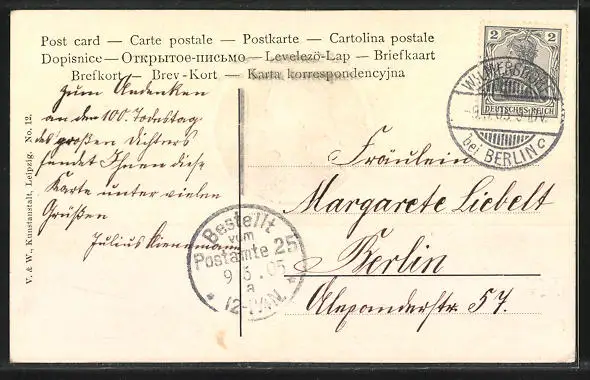 Post card — Carte postale — Postkarte — Cartolina postale
Dopisnice — Открытое-письмо — Levelezö-Lap — Briefkaart
Brefkort — Brev-Kort — Karta korrespondencyjna
zum Andenken
an den 100. Todestag
des großen Dichters
sendet Ihnen diese
Karte unter vielen
Grüßen
Julius
V. & W., Kunstanstalt, Leipzig. No. 12.
2 2
DEUTSCHES REICH
WILMERSDORF
bei BERLIN C
Bestellt
vom
Postamte 25
9 5 . 05
a
12-1 N.
Fräulein
Margarete Liebelt
Berlin
Alexanderstr. 57.